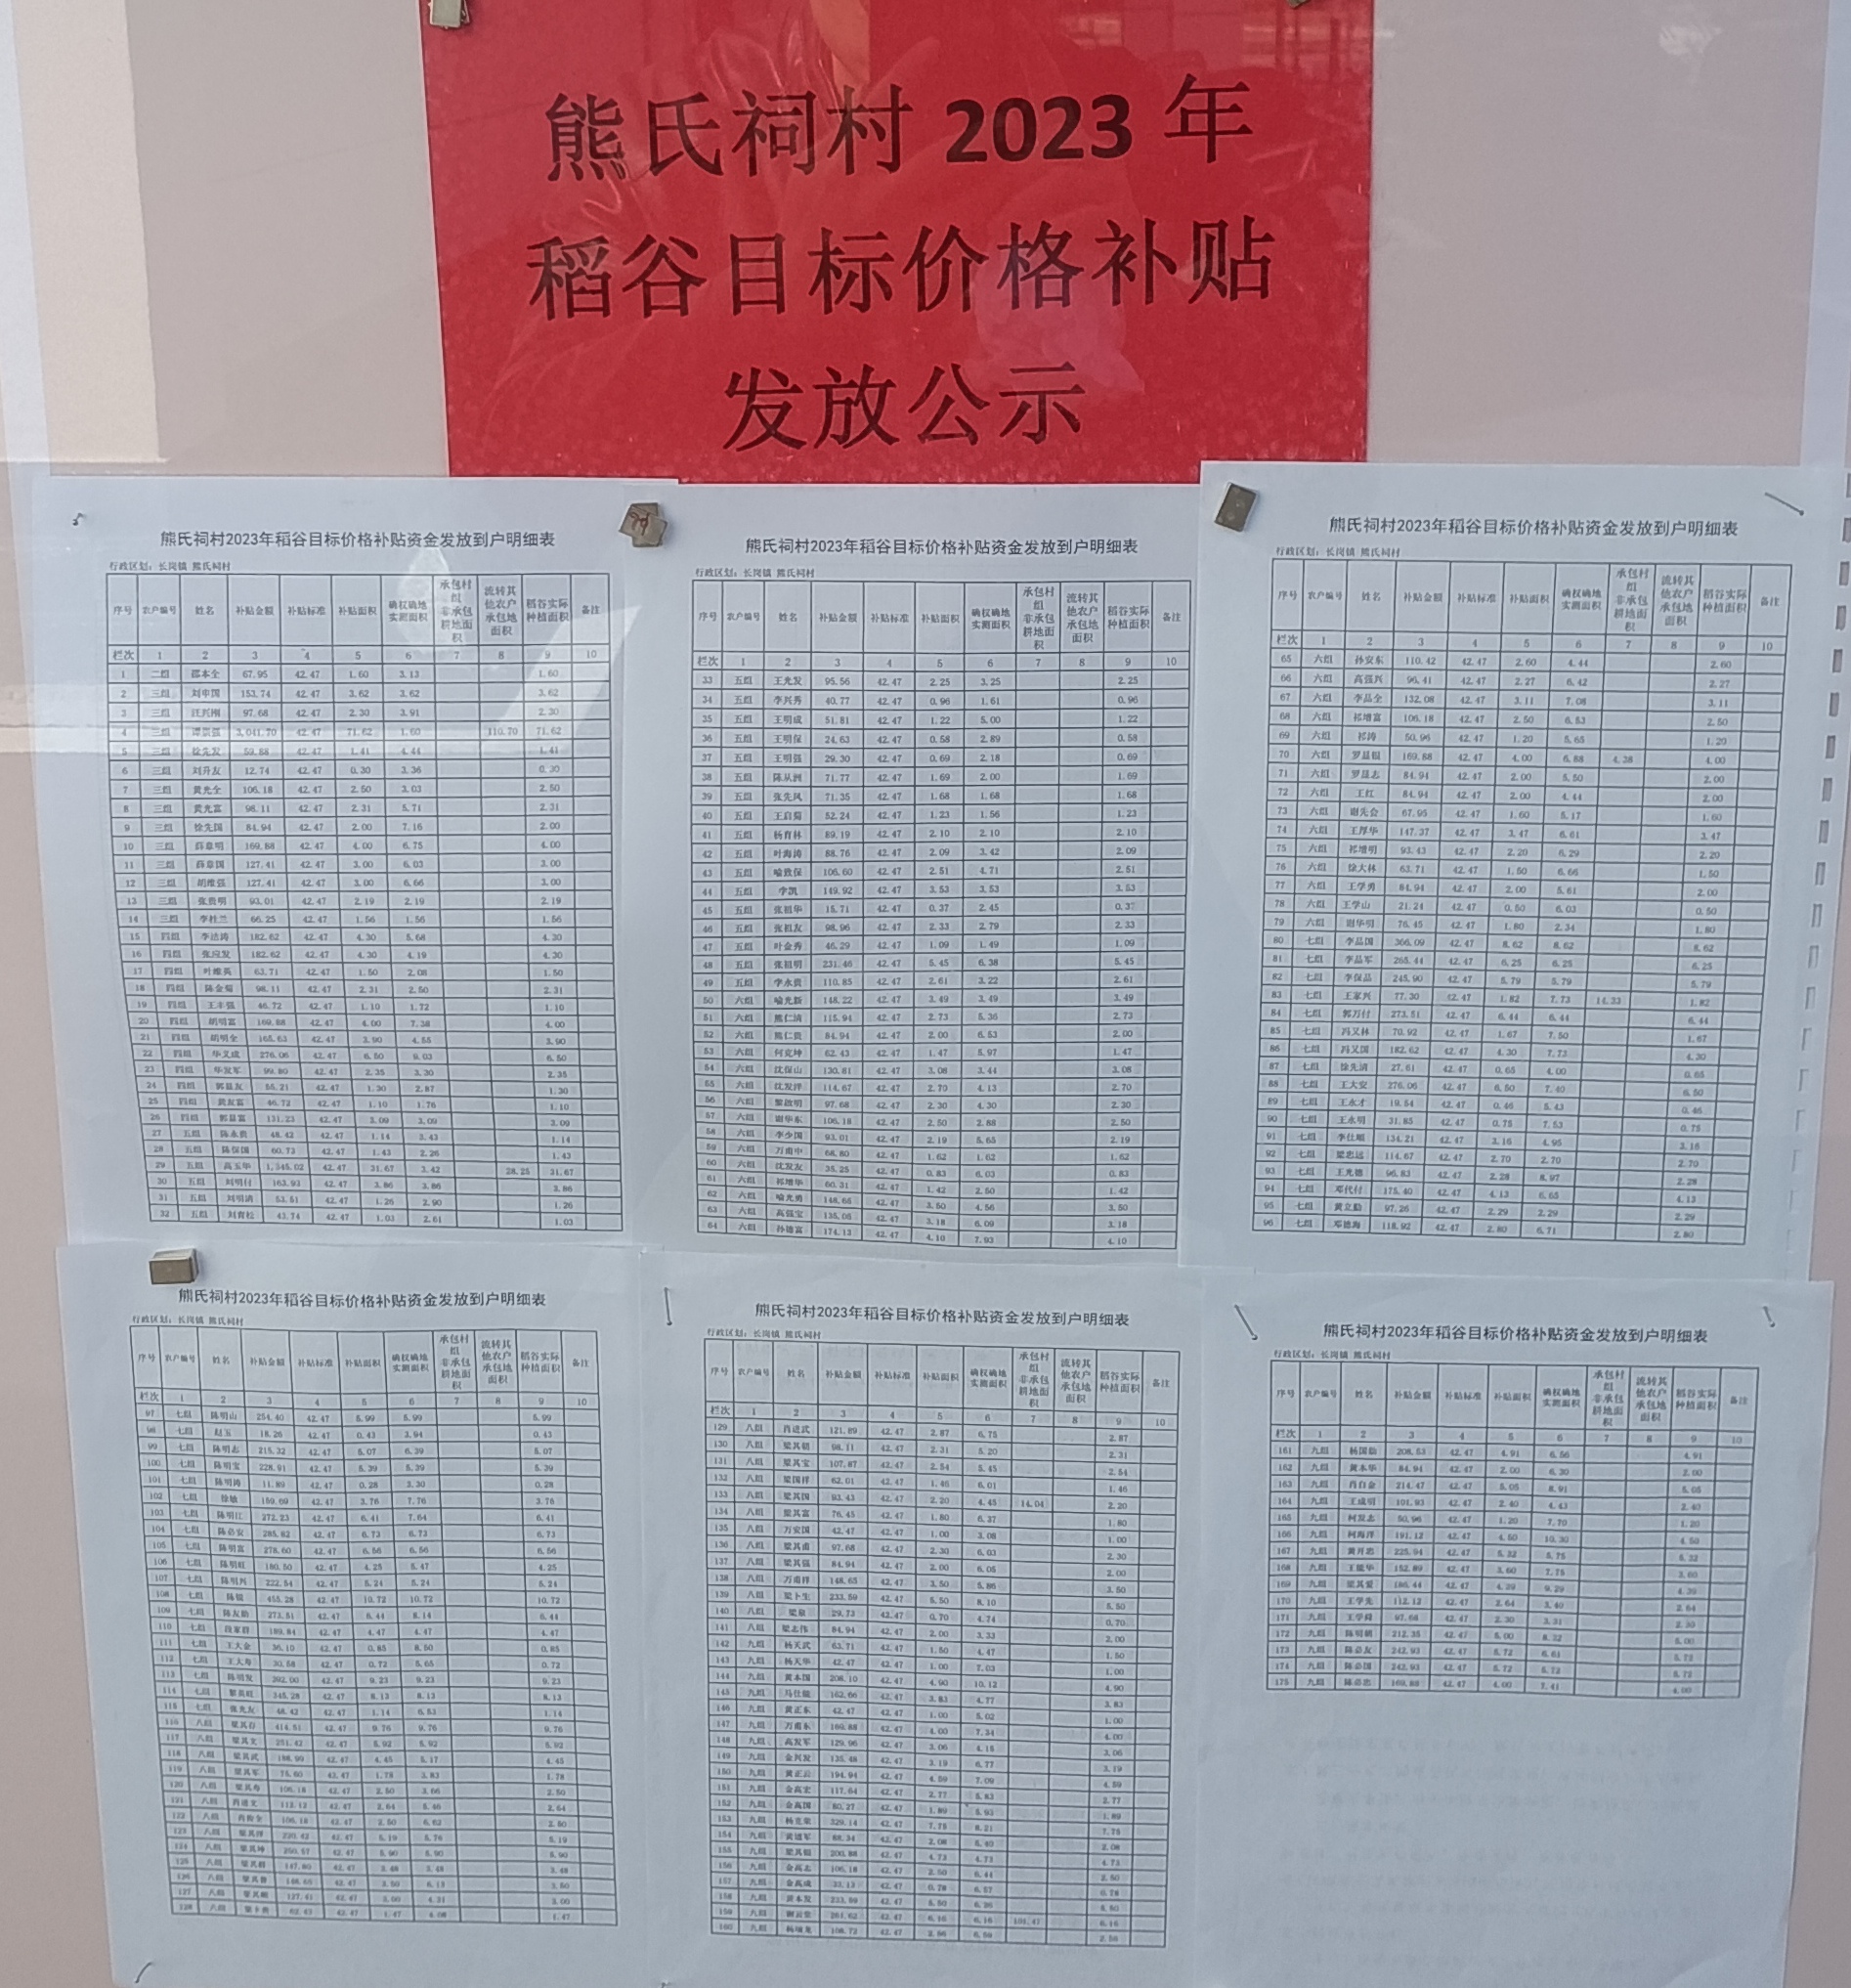 熊氏祠村 2023 年
稻谷目标价格补贴
发放公示
熊氏祠村2023年稻谷目标价格补贴资金发放到户明细表
行政区划：长岗镇 熊氏祠村
序号 农户编号 姓名 补贴金额 补贴标准 补贴面积 确权确地实测面积 承包村组非承包耕地面积 流转其他农户承包地面积 稻谷实际种植面积 备注
栏次 1 2 3 4 5 6 7 8 9 10
1 二组 邵本全 67.95 42.47 1.60 3.13 1.60
2 三组 刘申国 153.74 42.47 3.62 3.62 3.62
3 三组 汪兴刚 97.68 42.47 2.30 3.91 2.30
4 三组 3,041.70 42.47 71.62 1.60 110.70 71.62
5 三组 徐先发 59.88 42.47 1.41 4.44 1.41
6 三组 刘升友 12.74 42.47 0.30 3.36 0.30
7 三组 黄光全 106.18 42.47 2.50 3.03 2.50
8 三组 黄光富 98.11 42.47 2.31 5.71 2.31
9 三组 徐先国 84.94 42.47 2.00 7.16 2.00
10 三组 薛章明 169.88 42.47 4.00 6.75 4.00
11 三组 薛章国 127.41 42.47 3.00 6.03 3.00
12 三组 胡维强 127.41 42.47 3.00 6.66 3.00
13 三组 张贵明 93.01 42.47 2.19 2.19 2.19
14 三组 李桂兰 66.25 42.47 1.56 1.56 1.56
15 四组 李洁涛 182.62 42.47 4.30 5.68 4.30
16 四组 张应发 182.62 42.47 4.30 4.19 4.30
17 四组 叶维英 63.71 42.47 1.50 2.08 1.50
18 四组 陈金菊 98.11 42.47 2.31 2.50 2.31
19 四组 王丰强 46.72 42.47 1.10 1.72 1.10
20 四组 胡明富 169.88 42.47 4.00 7.38 4.00
21 四组 胡明全 165.63 42.47 3.90 4.55 3.90
22 四组 华文成 276.06 42.47 6.50 9.03 6.50
23 四组 华发军 99.80 42.47 2.35 3.30 2.35
24 四组 郭显友 55.21 42.47 1.30 2.87 1.30
25 四组 黄友富 46.72 42.47 1.10 1.76 1.10
26 四组 郭显富 131.23 42.47 3.09 3.09 3.09
27 五组 陈永贵 48.42 42.47 1.14 3.43 1.14
28 五组 陈保国 60.73 42.47 1.43 2.26 1.43
29 五组 高玉华 1,345.02 42.47 31.67 3.42 28.25 31.67
30 五组 刘明付 163.93 42.47 3.86 3.86 3.86
31 五组 刘明清 53.51 42.47 1.26 2.90 1.26
32 五组 刘青松 43.74 42.47 1.03 2.61 1.03
熊氏祠村2023年稻谷目标价格补贴资金发放到户明细表
行政区划：长岗镇 熊氏祠村
序号 农户编号 姓名 补贴金额 补贴标准 补贴面积 确权确地实测面积 承包村组非承包耕地面积 流转其他农户承包地面积 稻谷实际种植面积 备注
栏次 1 2 3 4 5 6 7 8 9 10
33 五组 王先发 95.56 42.47 2.25 3.25 2.25
34 五组 李兴秀 40.77 42.47 0.96 1.61 0.96
35 五组 王明成 51.81 42.47 1.22 5.00 1.22
36 五组 王明保 24.63 42.47 0.58 2.89 0.58
37 五组 王明强 29.30 42.47 0.69 2.18 0.69
38 五组 陈从洲 71.77 42.47 1.69 2.00 1.69
39 五组 张先凤 71.35 42.47 1.68 1.68 1.68
40 五组 王启菊 52.24 42.47 1.23 1.56 1.23
41 五组 杨育林 89.19 42.47 2.10 2.10 2.10
42 五组 叶海涛 88.76 42.47 2.09 3.42 2.09
43 五组 喻致保 106.60 42.47 2.51 4.71 2.51
44 五组 李凯 149.92 42.47 3.53 3.53 3.53
45 五组 张祖华 15.71 42.47 0.37 2.45 0.37
46 五组 张祖友 98.96 42.47 2.33 2.79 2.33
47 五组 叶金秀 46.29 42.47 1.09 1.49 1.09
48 五组 张祖明 231.46 42.47 5.45 6.38 5.45
49 五组 李永贵 110.85 42.47 2.61 3.22 2.61
50 六组 喻光新 148.22 42.47 3.49 3.49 3.49
51 六组 熊仁清 115.94 42.47 2.73 5.36 2.73
52 六组 熊仁贵 84.94 42.47 2.00 6.53 2.00
53 六组 何克坤 62.43 42.47 1.47 5.97 1.47
54 六组 沈保山 130.81 42.47 3.08 3.44 3.08
55 六组 沈发洋 114.67 42.47 2.70 4.13 2.70
56 六组 黎啟明 97.68 42.47 2.30 4.30 2.30
57 六组 谢华东 106.18 42.47 2.50 2.88 2.50
58 六组 李少国 93.01 42.47 2.19 5.65 2.19
59 六组 万甫中 68.80 42.47 1.62 1.62 1.62
60 六组 沈发友 35.25 42.47 0.83 6.03 0.83
61 六组 祁增华 60.31 42.47 1.42 2.50 1.42
62 六组 喻光勇 148.65 42.47 3.50 4.56 3.50
63 六组 高强宝 135.05 42.47 3.18 6.09 3.18
64 六组 孙德富 174.13 42.47 4.10 7.93 4.10
熊氏祠村2023年稻谷目标价格补贴资金发放到户明细表
行政区划：长岗镇 熊氏祠村
序号 农户编号 姓名 补贴金额 补贴标准 补贴面积 确权确地实测面积 承包村组非承包耕地面积 流转其他农户承包地面积 稻谷实际种植面积 备注
栏次 1 2 3 4 5 6 7 8 9 10
65 六组 孙安东 110.42 42.47 2.60 4.44 2.60
66 六组 高强兴 96.41 42.47 2.27 6.42 2.27
67 六组 李品全 132.08 42.47 3.11 7.08 3.11
68 六组 祁增富 106.18 42.47 2.50 6.53 2.50
69 六组 祁涛 50.96 42.47 1.20 5.65 1.20
70 六组 罗显银 169.88 42.47 4.00 6.88 4.38 4.00
71 六组 罗显志 84.94 42.47 2.00 5.50 2.00
72 六组 王红 84.94 42.47 2.00 4.44 2.00
73 六组 谢先会 67.95 42.47 1.60 5.17 1.60
74 六组 王厚华 147.37 42.47 3.47 6.61 3.47
75 六组 祁增明 93.43 42.47 2.20 6.29 2.20
76 六组 徐大林 63.71 42.47 1.50 6.66 1.50
77 六组 王学勇 84.94 42.47 2.00 5.61 2.00
78 六组 王学山 21.24 42.47 0.50 6.03 0.50
79 六组 谢华明 76.45 42.47 1.80 2.34 1.80
80 七组 李品国 366.09 42.47 8.62 8.62 8.62
81 七组 李品军 265.44 42.47 6.25 6.25 6.25
82 七组 李保品 245.90 42.47 5.79 5.79 5.79
83 七组 王家兴 77.30 42.47 1.82 7.73 14.33 1.82
84 七组 郭万付 273.51 42.47 6.44 6.44 6.44
85 七组 冯又林 70.92 42.47 1.67 7.50 1.67
86 七组 冯又国 182.62 42.47 4.30 7.73 4.30
87 七组 徐先清 27.61 42.47 0.65 4.00 0.65
88 七组 王大安 276.06 42.47 6.50 7.40 6.50
89 七组 王永才 19.54 42.47 0.46 5.43 0.46
90 七组 王永明 31.85 42.47 0.75 7.53 0.75
91 七组 李仕顺 134.21 42.47 3.16 4.95 3.16
92 七组 梁忠远 114.67 42.47 2.70 2.70 2.70
93 七组 王光德 96.83 42.47 2.28 8.97 2.28
94 七组 邓代付 175.40 42.47 4.13 6.65 4.13
95 七组 黄立勤 97.26 42.47 2.29 2.29 2.29
96 七组 邓德海 118.92 42.47 2.80 6.71 2.80
熊氏祠村2023年稻谷目标价格补贴资金发放到户明细表
行政区划：长岗镇 熊氏祠村
序号 农户编号 姓名 补贴金额 补贴标准 补贴面积 确权确地实测面积 承包村组非承包耕地面积 流转其他农户承包地面积 稻谷实际种植面积 备注
栏次 1 2 3 4 5 6 7 8 9 10
97 七组 陈明山 254.40 42.47 5.99 5.99 5.99
98 七组 赵玉 18.26 42.47 0.43 3.94 0.43
99 七组 陈明志 215.32 42.47 5.07 6.39 5.07
100 七组 陈明宝 228.91 42.47 5.39 5.39 5.39
101 七组 陈明涛 11.89 42.47 0.28 3.30 0.28
102 七组 徐敏 159.69 42.47 3.76 7.76 3.76
103 七组 陈明江 272.23 42.47 6.41 7.64 6.41
104 七组 陈必安 285.82 42.47 6.73 6.73 6.73
105 七组 陈明富 278.60 42.47 6.56 6.56 6.56
106 七组 陈明旺 180.50 42.47 4.25 5.47 4.25
107 七组 陈明兴 222.54 42.47 5.24 5.24 5.24
108 七组 陈银 455.28 42.47 10.72 10.72 10.72
109 七组 陈友勤 273.51 42.47 6.44 8.14 6.44
110 七组 段家群 189.84 42.47 4.47 4.47 4.47
111 七组 王大金 36.10 42.47 0.85 8.50 0.85
112 七组 王大寿 30.58 42.47 0.72 5.65 0.72
113 七组 陈明发 392.00 42.47 9.23 9.23 9.23
114 七组 345.28 42.47 8.13 8.13 8.13
115 七组 张光友 48.42 42.47 1.14 6.53 1.14
116 八组 414.51 42.47 9.76 9.76 9.76
117 八组 梁其文 251.42 42.47 5.92 5.92 5.92
118 八组 梁其武 188.99 42.47 4.45 5.17 4.45
119 八组 梁其军 75.60 42.47 1.78 3.83 1.78
120 八组 梁其寿 106.18 42.47 2.50 3.66 2.50
121 八组 肖进文 112.12 42.47 2.64 5.46 2.64
122 八组 106.18 42.47 2.50 6.62 2.50
123 八组 220.42 42.47 5.19 5.76 5.19
124 八组 梁其坤 250.57 42.47 5.90 5.90 5.90
125 八组 147.80 42.47 3.48 3.48 3.48
126 八组 148.65 42.47 3.50 6.13 3.50
127 八组 127.41 42.47 3.00 4.31 3.00
128 八组 62.43 42.47 1.47 4.08 1.47
熊氏祠村2023年稻谷目标价格补贴资金发放到户明细表
行政区划：长岗镇 熊氏祠村
序号 农户编号 姓名 补贴金额 补贴标准 补贴面积 确权确地实测面积 承包村组非承包耕地面积 流转其他农户承包地面积 稻谷实际种植面积 备注
栏次 1 2 3 4 5 6 7 8 9 10
129 八组 肖进武 121.89 42.47 2.87 6.75 2.87
130 八组 梁其朝 98.11 42.47 2.31 5.20 2.31
131 八组 梁其宝 107.87 42.47 2.54 5.45 2.54
132 八组 梁国祥 62.01 42.47 1.46 6.01 1.46
133 八组 梁其国 93.43 42.47 2.20 4.45 14.04 2.20
134 八组 梁其富 76.45 42.47 1.80 6.37 1.80
135 八组 万安国 42.47 42.47 1.00 3.08 1.00
136 八组 梁其甫 97.68 42.47 2.30 6.03 2.30
137 八组 梁其强 84.94 42.47 2.00 6.05 2.00
138 八组 万甫祥 148.65 42.47 3.50 5.86 3.50
139 八组 梁卜生 233.59 42.47 5.50 8.10 5.50
140 八组 梁泉 29.73 42.47 0.70 4.74 0.70
141 八组 梁志伟 84.94 42.47 2.00 3.33 2.00
142 九组 杨天武 63.71 42.47 1.50 4.47 1.50
143 九组 杨天华 42.47 42.47 1.00 7.03 1.00
144 九组 黄本国 208.10 42.47 4.90 10.12 4.90
145 九组 马仕能 162.66 42.47 3.83 4.77 3.83
146 九组 黄正东 42.47 42.47 1.00 5.02 1.00
147 九组 万甫东 169.88 42.47 4.00 7.34 4.00
148 九组 高发军 129.96 42.47 3.06 4.15 3.06
149 九组 金兴发 135.48 42.47 3.19 6.77 3.19
150 九组 黄正云 194.94 42.47 4.59 7.09 4.59
151 九组 金高宏 117.64 42.47 2.77 5.83 2.77
152 九组 金高国 80.27 42.47 1.89 5.93 1.89
153 九组 329.14 42.47 7.75 8.21 7.75
154 九组 黄道军 88.34 42.47 2.08 5.40 2.08
155 九组 梁其银 200.88 42.47 4.73 4.73 4.73
156 九组 金高志 106.18 42.47 2.50 6.44 2.50
157 九组 金高成 33.13 42.47 0.78 6.57 0.78
158 九组 黄本发 233.59 42.47 5.50 5.50
159 九组 261.62 42.47 6.16 6.16 101.47 6.16
160 九组 108.72 42.47 2.56 6.59 2.56
熊氏祠村2023年稻谷目标价格补贴资金发放到户明细表
行政区划：长岗镇 熊氏祠村
序号 农户编号 姓名 补贴金额 补贴标准 补贴面积 确权确地实测面积 承包村组非承包耕地面积 流转其他农户承包地面积 稻谷实际种植面积 备注
栏次 1 2 3 4 5 6 7 8 9 10
161 九组 杨国勤 208.53 42.47 4.91 6.56 4.91
162 九组 黄本华 84.94 42.47 2.00 6.30 2.00
163 九组 肖自金 214.47 42.47 5.05 8.91 5.05
164 九组 王成明 101.93 42.47 2.40 4.43 2.40
165 九组 柯发志 50.96 42.47 1.20 7.70 1.20
166 九组 柯海洋 191.12 42.47 4.50 10.30 4.50
167 九组 黄月忠 225.94 42.47 5.32 5.75 5.32
168 九组 王能华 152.89 42.47 3.60 7.75 3.60
169 九组 梁其爱 186.44 42.47 4.39 9.29 4.39
170 九组 王学先 112.12 42.47 2.64 3.40 2.64
171 九组 王学舜 97.68 42.47 2.30 3.31 2.30
172 九组 陈明娥 212.35 42.47 5.00 8.32 5.00
173 九组 陈必友 242.93 42.47 5.72 6.61 5.72
174 九组 陈必国 242.93 42.47 5.72 5.72 5.72
175 九组 陈必忠 169.88 42.47 4.00 7.41 4.00